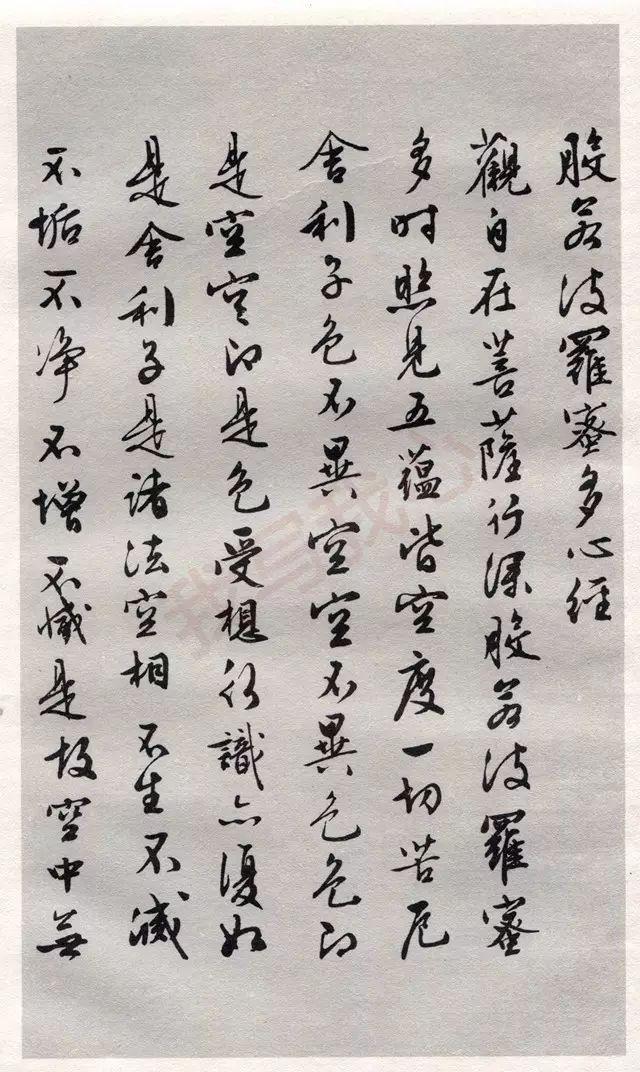 般若波羅蜜多心經
觀自在菩薩行深般若波羅蜜
多时照見五蘊皆空度一切苦厄
舍利子色不異空空不異色色即
是空空即是色受想行識亦復如
是舍利子是諸法空相不生不滅
不垢不净不增不減是故空中無
我写我心